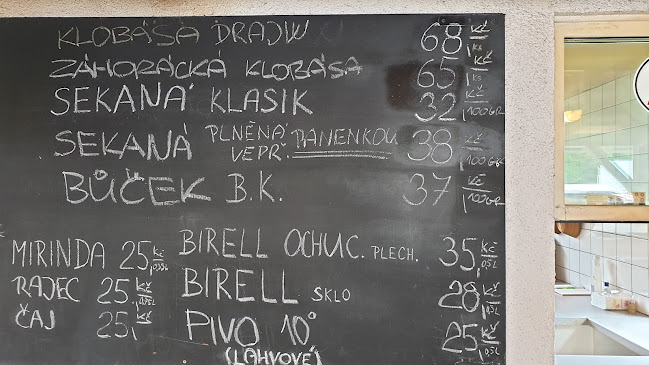 KLOBÁSA DRAJW 68 Kč/ks
ZÁHORÁCKÁ KLOBÁSA 65 Kč/ks
SEKANÁ KLASIK 32 Kč/100GR
SEKANÁ PLNĚNÁ VEPŘ. PANENKOU 38 Kč/100GR
BŮČEK B.K. 37 Kč/100GR
MIRINDA 25,Kč/0,33L
RAJEC 25,Kč/0,75L
ČAJ 25,Kč
BIRELL OCHUC. PLECH. 35,Kč/0,5L
BIRELL SKLO 28,Kč/0,5L
PIVO 10° 25,Kč/0,5L
(LAHVOVÉ)